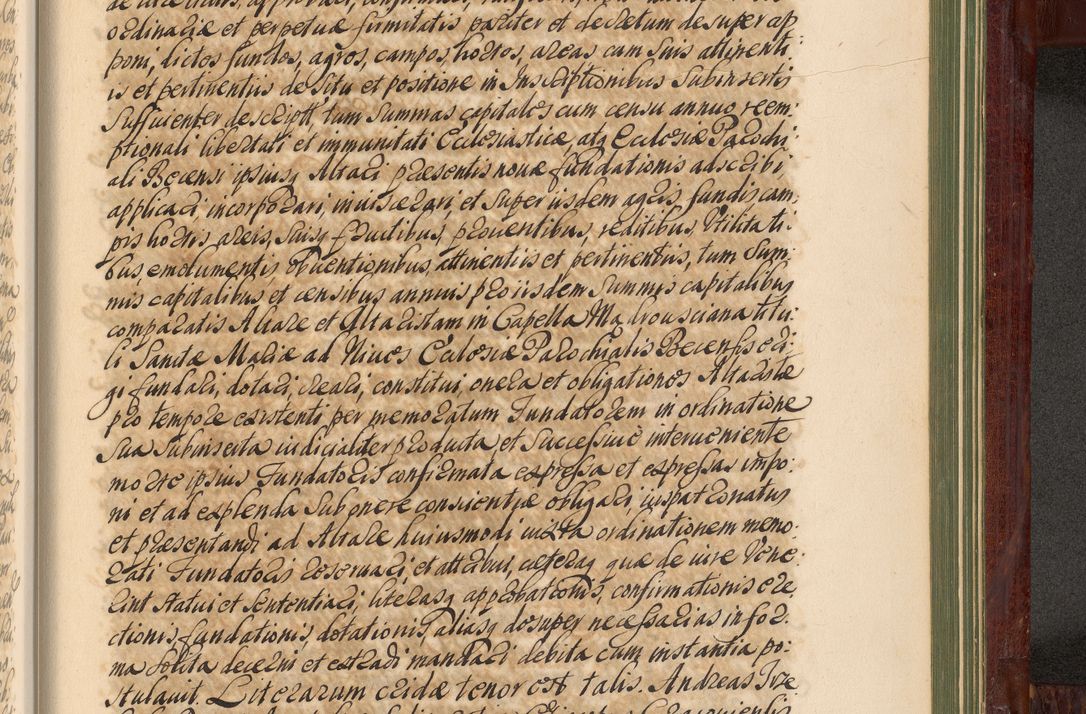 ordinariæ et perpetuæ firmitatis pariter et decretum desuper ap
poni, dictos fundos, agros, campos, hortos, areas cum suis attinenti
is et pertinentiis de situ et positione in Inscriptionibus subinsertis
sufficienter descript. tum summas capitales cum censu annuo reem
ptionali libertati et immunitati Ecclesiasticæ, atq Ecclesiæ Parochi:
ali Becensi ipsiusq Altari præsentis novæ fundationis adscribi,
applicari, incorporari, inviscerari, et super iisdem agris, fundis cam,
pis hortis areis, suisq fructibus, proventibus, reditibus, Utilitati:
bus, emolumentis, obventionibus, attinentiis et pertinentiis, tum Sum:
mis capitalibus et censibus annuis pro iisdem Summis capitalibus
comparatis Altare et Altaristam in Capella Madrousciana titu:
li Sanctæ Mariæ ad Nives Ecclesiæ Parochialis Becensis eri:
gi fundari, dotari, creari, constitui, onera et obligationes Altaristæ
pro tempore existenti per memoratum Fundatorem in ordinatione
sua subinserta iudicialiter producta, et successive interveniente
morte ipsius Fundatoris confirmata expressa et expressas impo:
ni et ad explenda sub onere conscientiæ obligari, iuspatronatus
et præsentandi ad Altare huiusmodi iuxta ordinationem memo:
rati Fundatoris reservari et attribui, cæteraq quæ de iure Vene:
rint statui et sententiari, literasq approbationis, confirmationis ere,
ctionis, fundationis, dotationis, aliasq desuper necessarias in for:
ma solita decerni et extradi mandari debita cum instantia po:
stulavit. Literarum cridæ tenor est talis. Andreas Trze